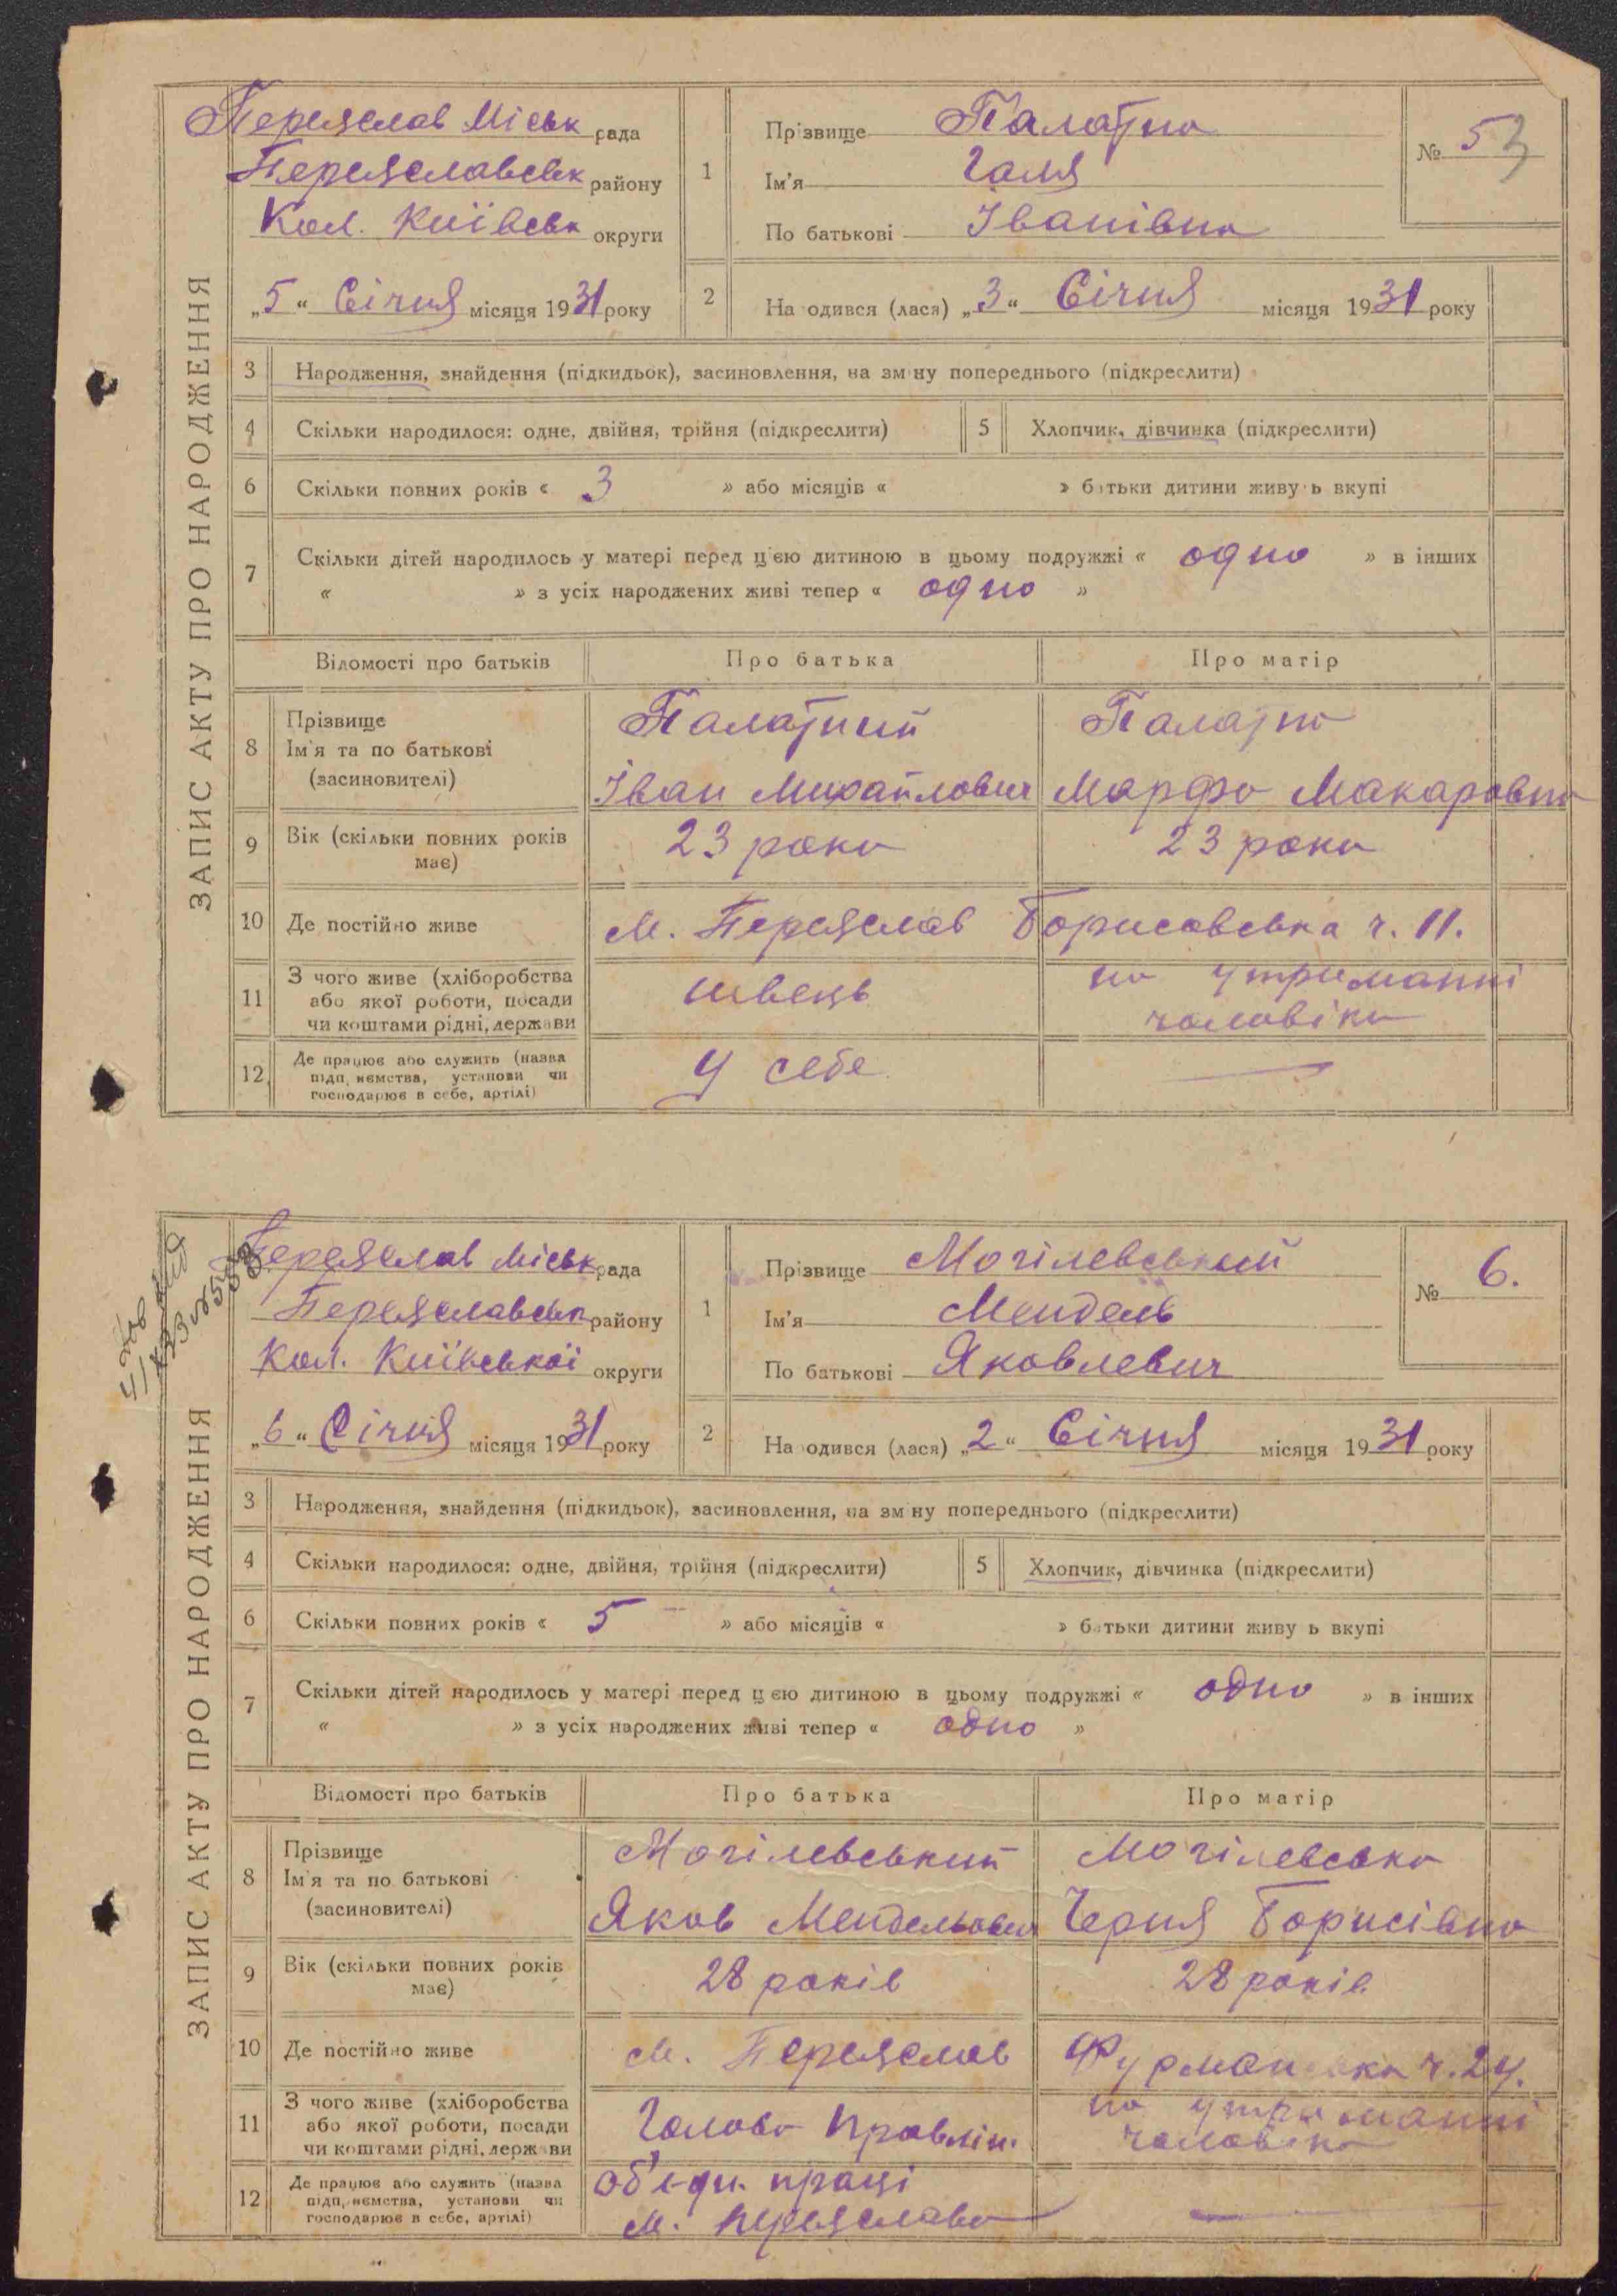 ЗАПИС АКТУ ПРО НАРОДЖЕННЯ
Переяслав Міськ рада
Переяславськ району
Кол. Київськ округи
„5“ Січня місяця 1931 року
1
Прізвище Палатна
Ім'я Галя
По батькові Іванівна
№ 5
2 На одився (лася) „3“ Січня місяця 1931 року
3 Народження, знайдення (підкидьок), засиновлення, на зм ну попереднього (підкреслити)
4 Скільки народилося: одне, двійня, трійня (підкреслити) 5 Хлопчик, дівчинка (підкреслити)
6 Скільки повних років « 3 » або місяців « » батьки дитини живу ь вкупі
7 Скільки дітей народилось у матері перед цією дитиною в цьому подружжі « одно » в інших
« » з усіх народжених живі тепер « одно »
Відомості про батьків Про батька Про матір
8 Прізвище
Ім'я та по батькові
(засиновителі)
Палатний Палатна
Іван Михайлович Марфа Макаровна
9 Вік (скільки повних років
має)
23 роки 23 роки
10 Де постійно живе м. Переяслав Борисовська ч. 11.
11 З чого живе (хліборобства
або якої роботи, посади
чи коштами рідні, держави
швець на утриманні
чоловіка
12 Де працює або служить (назва
підп, иємства, установи чи
господарює в себе, артілі)
У себе —
ЗАПИС АКТУ ПРО НАРОДЖЕННЯ
Переяслав Міськ рада
Переяславськ району
Кол. Київської округи
„6“ Січня місяця 1931 року
1
Прізвище Могілевський
Ім'я Мендель
По батькові Яковлевич
№ 6.
2 На одився (лася) „2“ Січня місяця 1931 року
3 Народження, знайдення (підкидьок), засиновлення, на зм ну попереднього (підкреслити)
4 Скільки народилося: одне, двійня, трійня (підкреслити) 5 Хлопчик, дівчинка (підкреслити)
6 Скільки повних років « 5 – » або місяців « » батьки дитини живу ь вкупі
7 Скільки дітей народилось у матері перед цією дитиною в цьому подружжі « одно » в інших
« » з усіх народжених живі тепер « одно »
Відомості про батьків Про батька Про матір
8 Прізвище
Ім'я та по батькові
(засиновителі)
Могілевський Могілевська
Яков Менделович Черня Борисівна
9 Вік (скільки повних років
має)
28 років 28 років
10 Де постійно живе м. Переяслав ч. 24.
11 З чого живе (хліборобства
або якої роботи, посади
чи коштами рідні, держави
Голова Правлін. на утриманні
чоловіка
12 Де працює або служить (назва
підп, иємства, установи чи
господарює в себе, артілі)
об'єдн. праці
м. Переяслава —